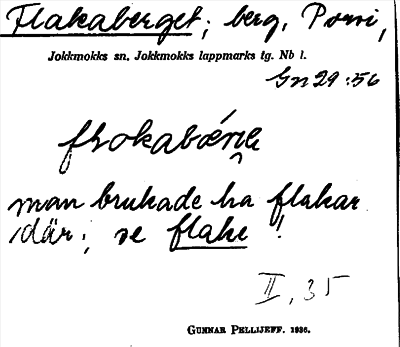 Flakaberget; berg, Porsi,
Jokkmokks sn. Jokkmokks lappmarks tg. Nb l.
Gn 29:56
man brukade ha flakar
där; se flake !
II, 35
GUNNAR PELLIJEFF. 1936.